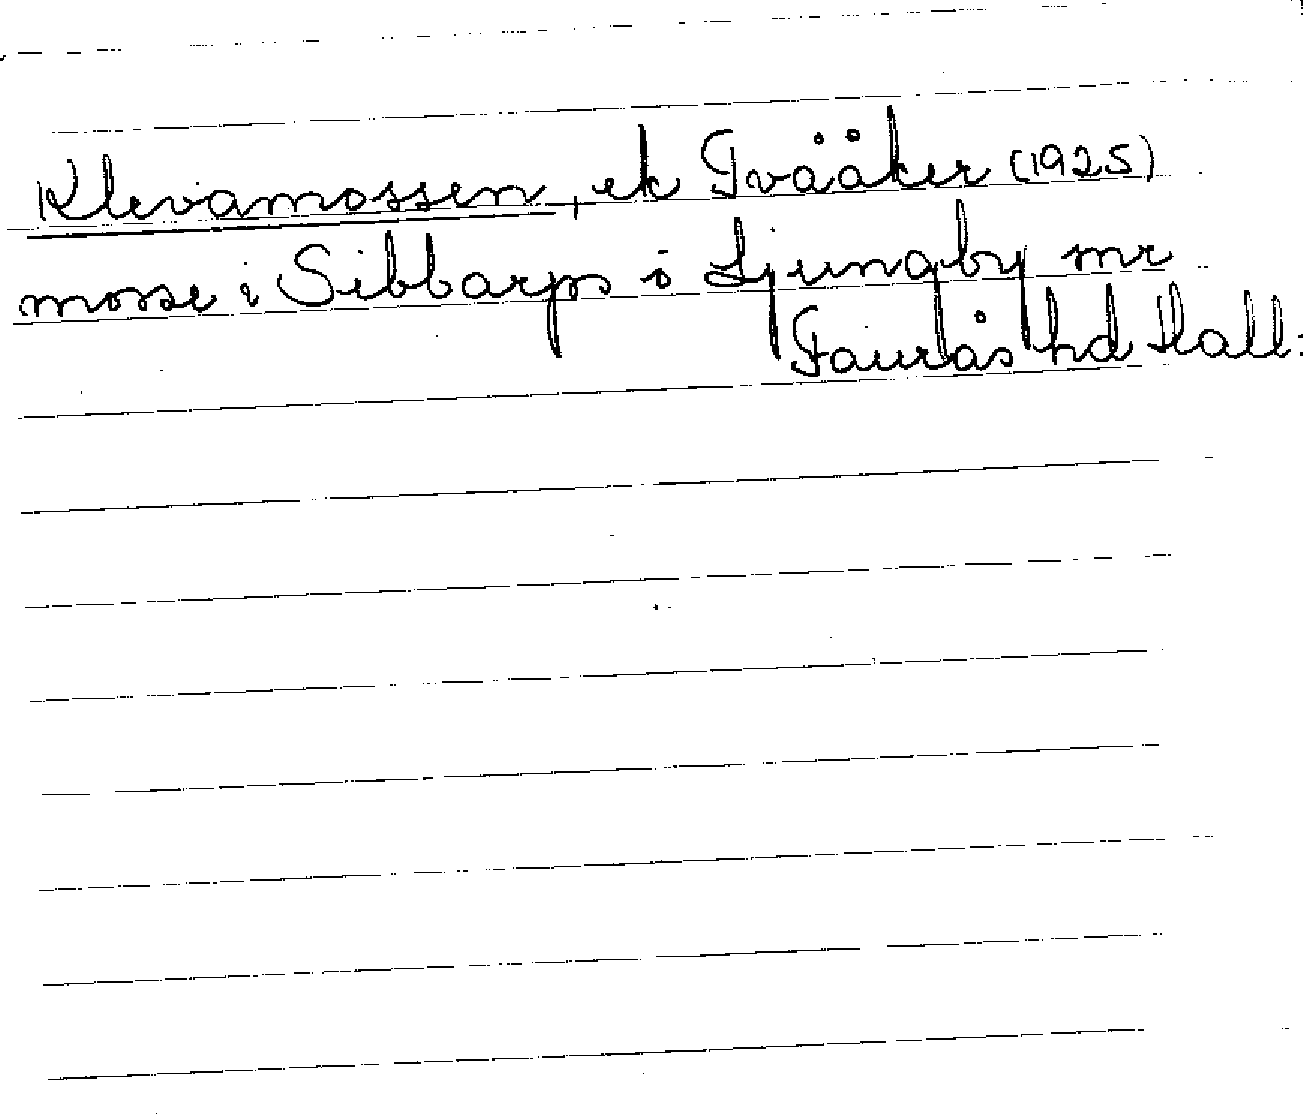 Klevamossen, ek Tvååker (1925)
mosse i Sibbarps o Ljungby snr
Faurås hd Hall: